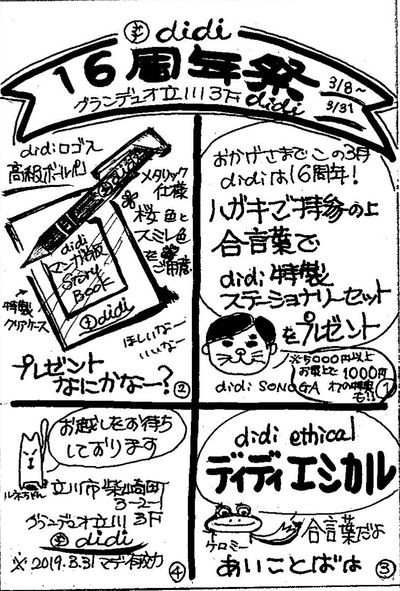 didi
16周年祭
3/8~
3/31
グランデュオ立川3F didi
おかげさまでこの3月
didiは16周年!
ハガキご持参の上
合言葉で
didi特製
ステーショナリーセット
をプレゼント
※5000円以上
お買上で1000円
の特典
も!!
didi SONOGA
①
didiロゴ入
高級ボールペン
メタリック
仕様
桜色と
スミレ色
をご用意
didi
マンガ版
Story
Book
didi
特製
クリアケース
ほしいなー
いいなー
プレゼント
なにかなー?
②
didi ethical
ディディエシカル
ケロミー
合言葉だよ
あいことばは
③
お越しをお待ち
しております
ルネちゃん
立川市柴崎町
3-2-1
グランデュオ立川
3F
didi
※2019.3.31マデ有効
④